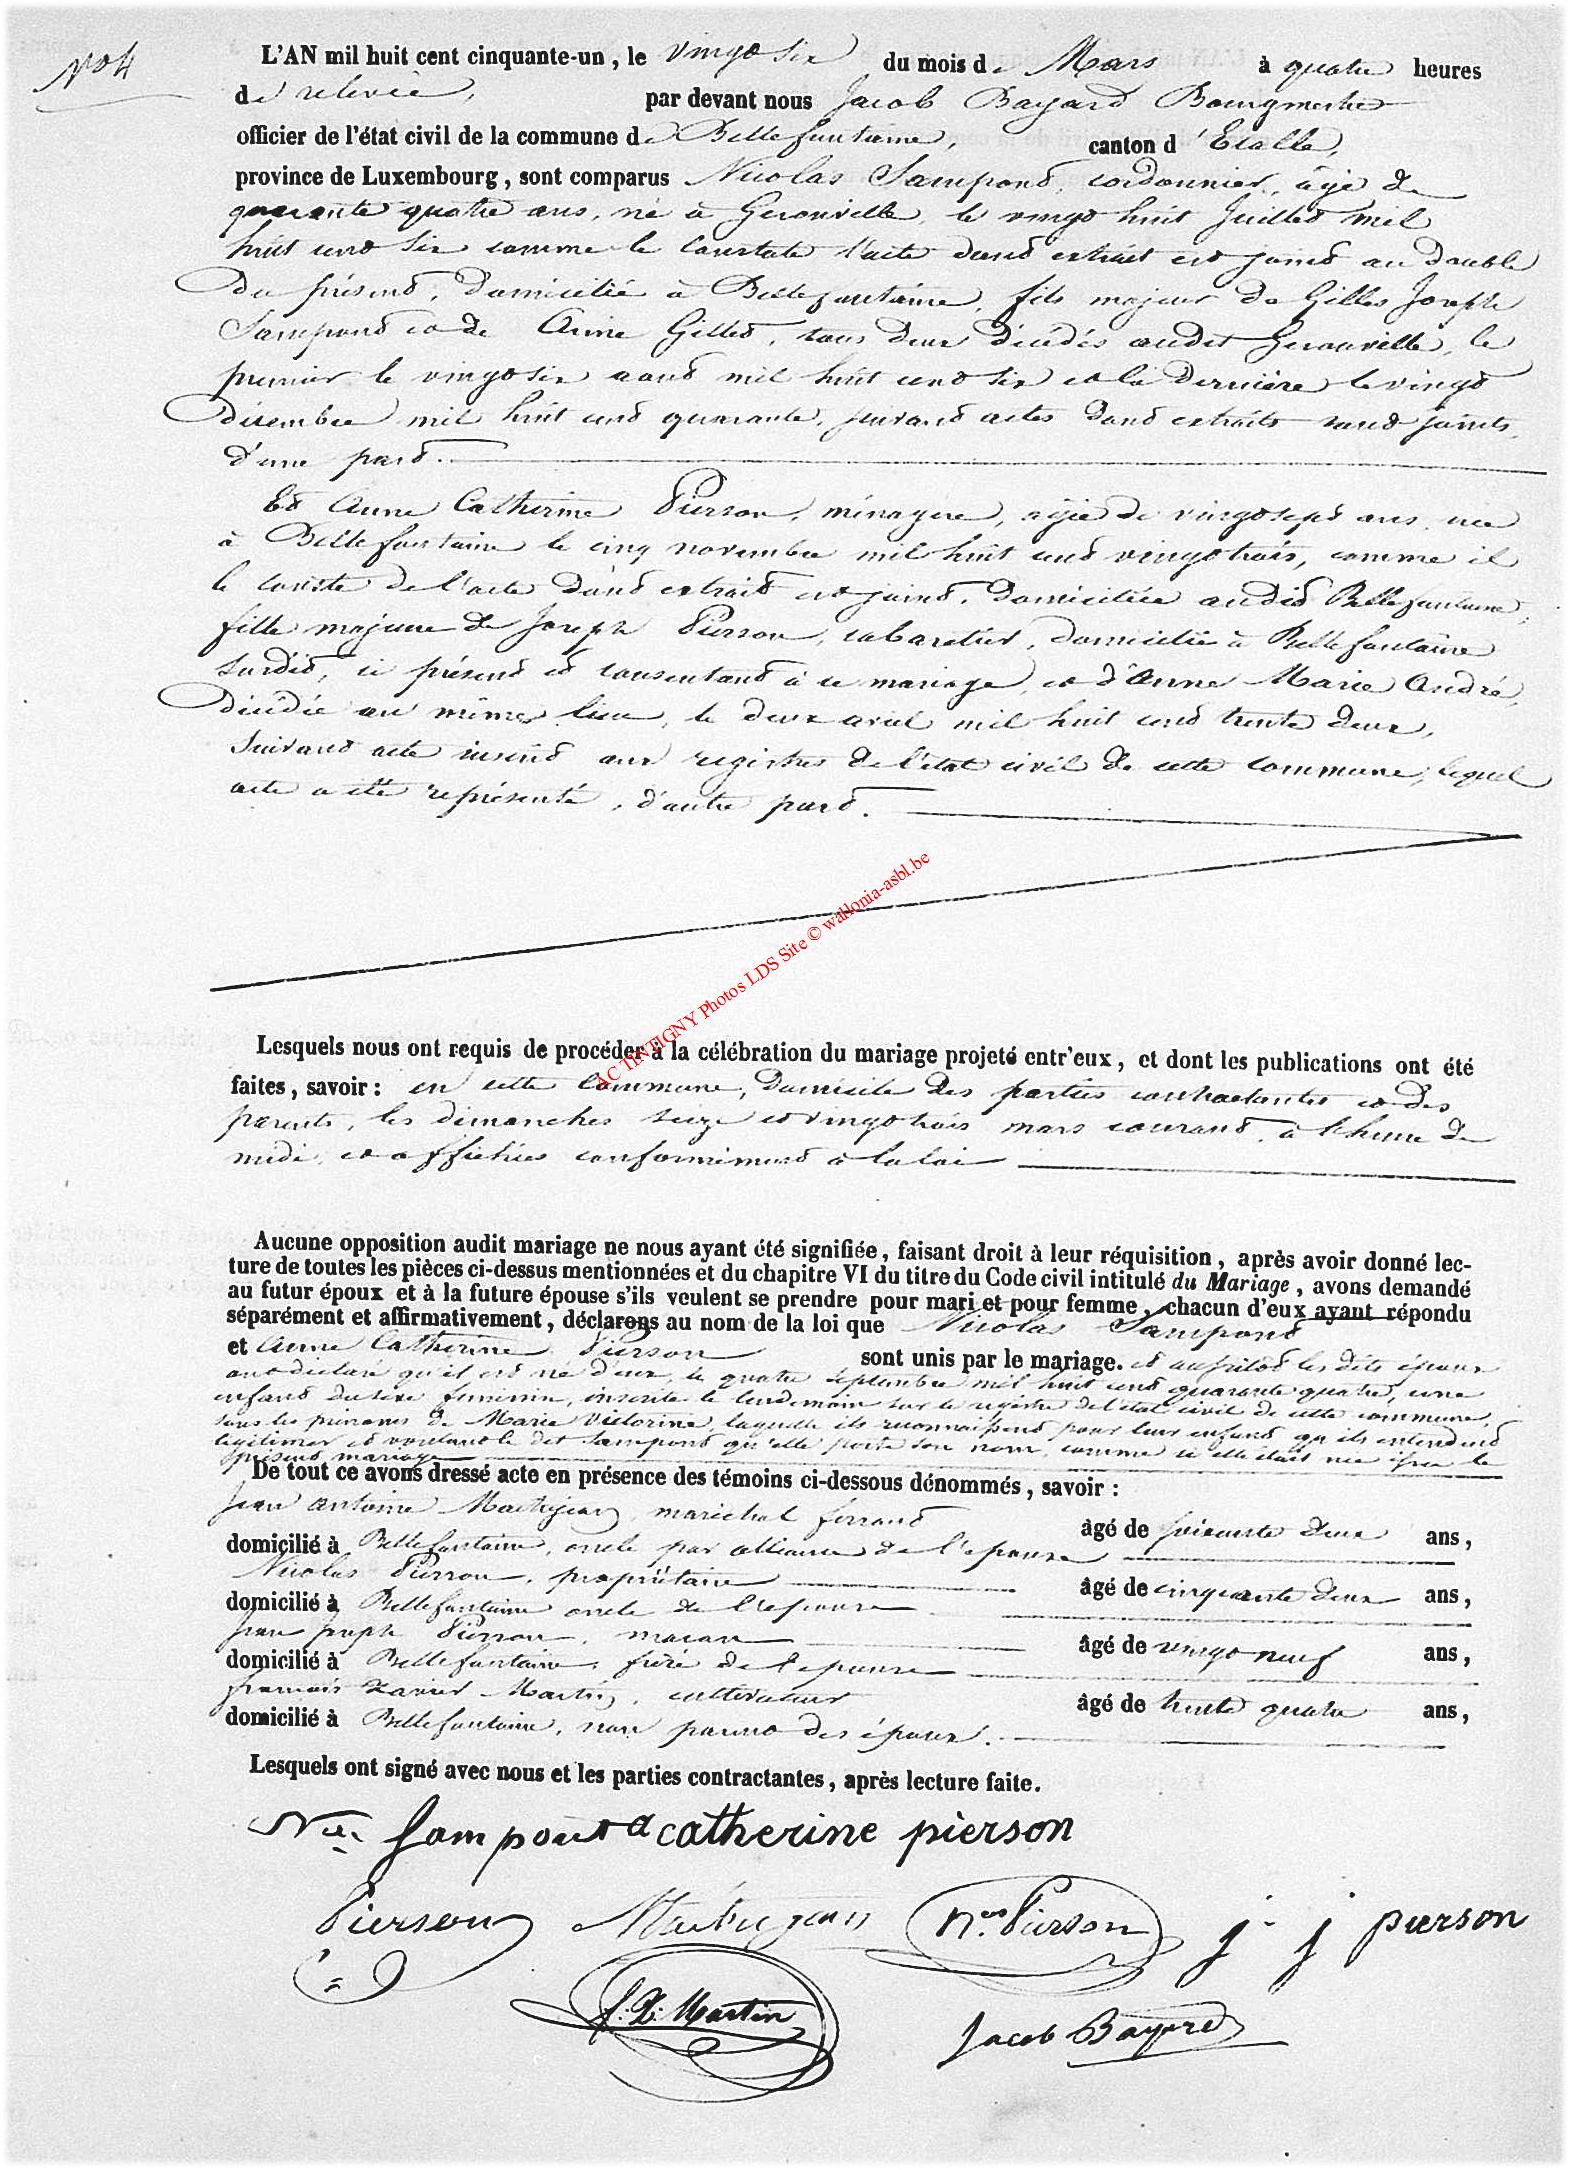 N° 4
L'AN mil huit cent cinquante-un, le vingt six du mois de Mars à quatre heures
de relevée, par devant nous Jacob Bayard Bourgmestre
officier de l'état civil de la commune de Bellefontaine, canton d'Etalle,
province de Luxembourg, sont comparus Nicolas Sampont, cordonnier, âgé de
quarante quatre ans, né à Gerouville, le vingt huit Juillet mil
huit cent six comme le constate l'acte dont extrait est joint au double
du présent, domicilié à Bellefontaine, fils majeur de Gilles Joseph
Sampont et de Anne Gillet, tous deux décédés audit Gerouville, le
premier le vingt six aout mil huit cent six et la dernière le vingt
décembre mil huit cent quarante, suivant actes dont extraits sont joints,
d'une part.
Et Anne Catherine Pierson, ménagère, agée de vingt sept ans, née
à Bellefontaine le cinq novembre mil huit cent vingt trois, comme il
le conste de l'acte dont extrait est joint, domiciliée audit Bellefontaine,
fille majeure de Joseph Pierson, cabaretier, domicilié à Bellefontaine
susdit, ci présent et consentant à ce mariage, et d'Anne Marie André,
décédée au même lieu, le deux avril mil huit cent trente deux,
suivant acte inscrit aux registres de l'état civil de cette commune, lequel
acte a été représenté, d'autre part.
AC TINTIGNY Photos LDS Site © wallonia-asbl.be
Lesquels nous ont requis de procéder à la célébration du mariage projeté entr'eux, et dont les publications ont été
faites, savoir: en cette Commune, domicile des parties contractantes et des
parents, les dimanches seize et vingt trois mars courant, à l'heure de
midi, et affichées conformément à la loi
Aucune opposition audit mariage ne nous ayant été signifiée, faisant droit à leur réquisition, après avoir donné lec-
ture de toutes les pièces ci-dessus mentionnées et du chapitre VI du titre du Code civil intitulé du Mariage, avons demandé
au futur époux et à la future épouse s'ils veulent se prendre pour mari et pour femme, chacun d'eux ayant répondu
séparément et affirmativement, déclarons au nom de la loi que Nicolas Sampont
et Anne Catherine Pierson sont unis par le mariage. et aussitôt les dits époux
ont déclaré qu'il est né d'eux, le quatre septembre mil huit cent quarante quatre, une
enfant du sexe féminin, inscrite le lendemain sur le registre de l'état civil de cette commune,
sous les prénoms de Marie Victorine, laquelle ils reconnaissent pour leur enfant qu'ils entendent
légitimer et voulant le dit Sampont qu'elle porte son nom, comme si elle était née le
présent mariage
De tout ce avons dressé acte en présence des témoins ci-dessous dénommés, savoir:
Jean Antoine Mautrejean, maréchal ferrant âgé de soixante deux ans,
domicilié à Bellefontaine, oncle par alliance de l'épouse
Nicolas Pierson, propriétaire âgé de cinquante deux ans,
domicilié à Bellefontaine oncle de l'épouse
Jean Joseph Pierson, maçon âgé de vingt neuf ans,
domicilié à Bellefontaine, frère de l'épouse
François Xavier Martin, cultivateur âgé de trente quatre ans,
domicilié à Bellefontaine, non parent des époux.
Lesquels ont signé avec nous et les parties contractantes, après lecture faite.
Nas Sampont a catherine pierson
Pierson Nas Pierson j j pierson
f: X: Martin Jacob Bayard